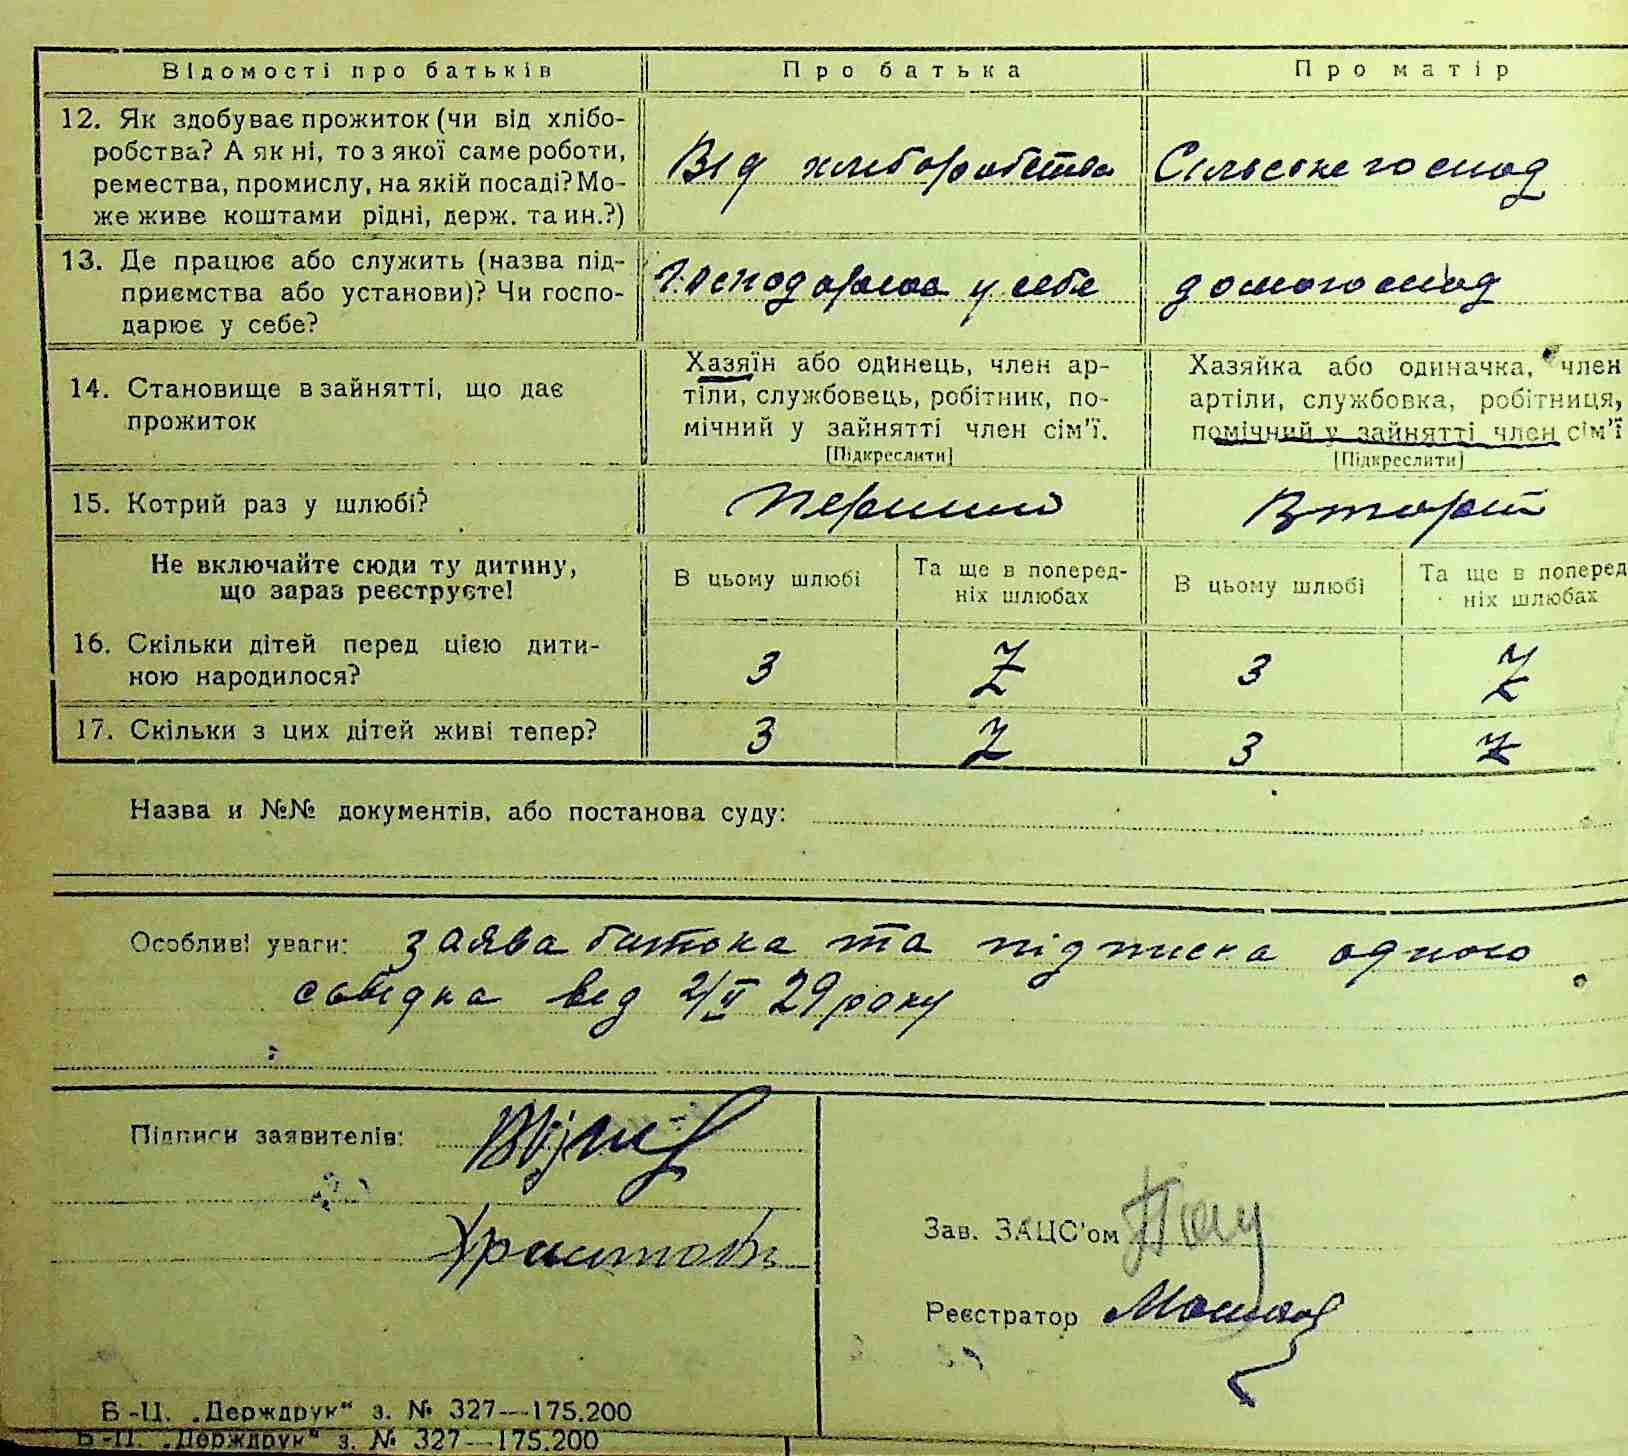 Відомості про батьків Про батька Про матір
12. Як здобуває прожиток (чи від хлібо-
робства? А як ні, то з якої саме роботи,
ремества, промислу, на якій посаді? Мо-
же живе коштами рідні, держ. та ин.?)
Від хліборобства Сільське господ
13. Де працює або служить (назва під-
приємства або установи)? Чи госпо-
дарює у себе?
у себе домогоспод
14. Становище в зайнятті, що дає
прожиток
Хазяїн або одинець, член ар-
тіли, службовець, робітник, по-
мічний у зайнятті член сім'ї.
[Підкреслити]
Хазяйка або одиначка, член
артіли, службовка, робітниця,
помічний у зайнятті член сім'ї
[Підкреслити]
15. Котрий раз у шлюбі? Перший
Не включайте сюди ту дитину,
що зараз реєструєте!
В цьому шлюбі
Та ще в поперед-
ніх шлюбах
В цьому шлюбі
Та ще в поперед
ніх шлюбах
16. Скільки дітей перед цією дити-
ною народилося?
3 Z 3 Z
17. Скільки з цих дітей живі тепер? 3 Z 3 Z
Назва и №№ документів, або постанова суду:
Особливі уваги: заява батька та підписка одного
свідка від 2/II 29 року
Підписи заявителів:
Зав. ЗАЦС'ом
Реєстратор
Б-Ц. „Держдрук" з. № 327—175.200
Б-Ц. „Держдрук" з. № 327—175.200